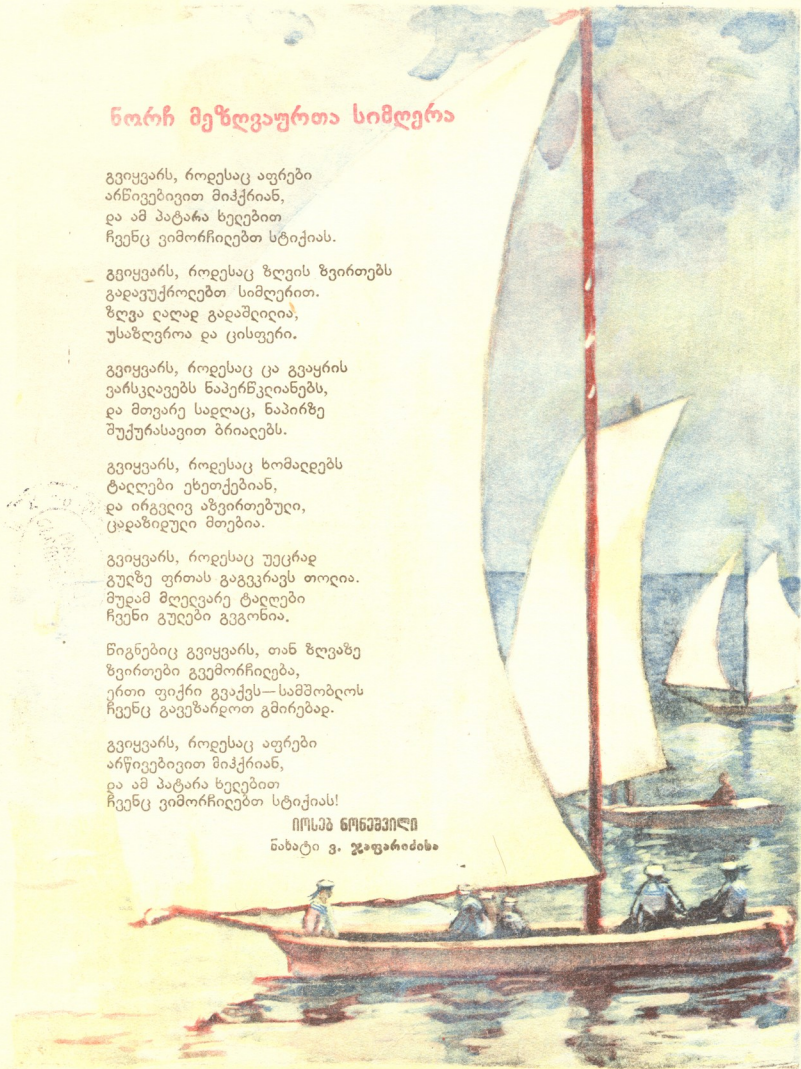 ნორჩ მეზღვაურთა სიმღერა
გვიყვარს, როდესაც აფრები
არწივებივით მიჰქრიან,
და ამ პატარა ხელებით
ჩვენც ვიმორჩილებთ სტიქიას.
გვიყვარს, როდესაც ზღვის ზვირთებს
გადავუქროლებთ სიმღერით.
ზღვა ლაღად გადაშლილია,
უსაზღვროა და ცისფერი.
გვიყვარს, როდესაც ცა გვაყრის
ვარსკლავებს ნაპერწკლიანებს,
და მთვარე სადღაც, ნაპირზე
შუქურასავით ბრიალებს.
გვიყვარს, როდესაც ხომალდებს
ტალღები ეხეთქებიან,
და ირგვლივ აზვირთებული,
ცადაზიდული მთებია.
გვიყვარს, როდესაც უეცრად
გულზე ფრთას გაგვკრავს თოლია.
მუდამ მღელვარე ტალღები
ჩვენი გულები გვგონია.
წიგნებიც გვიყვარს, თან ზღვაზე
ზვირთები გვემორჩილება,
ერთი ფიქრი გვაქვს—სამშობლოს
ჩვენც გავეზარდოთ გმირებად.
გვიყვარს, როდესაც აფრები
არწივებივით მიჰქრიან,
და ამ პატარა ხელებით
ჩვენც ვიმორჩილებთ სტიქიას!
იოსებ ნონეშვილი
ნახატი ვ. ჯაფარიძისა